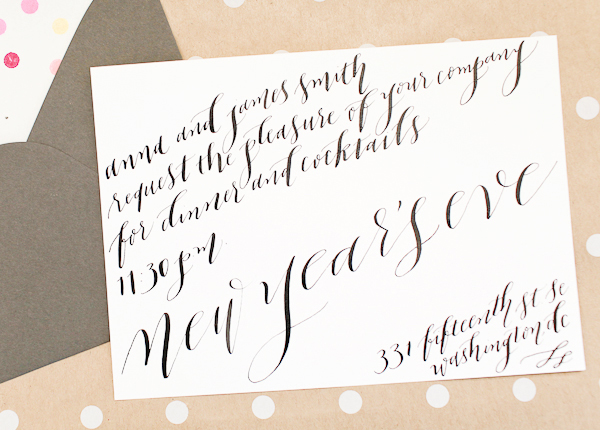 anna and james smith
request the pleasure of your company
for dinner and cocktails
11:30 pm
new year's eve
331 fifteenth st se
washington dc